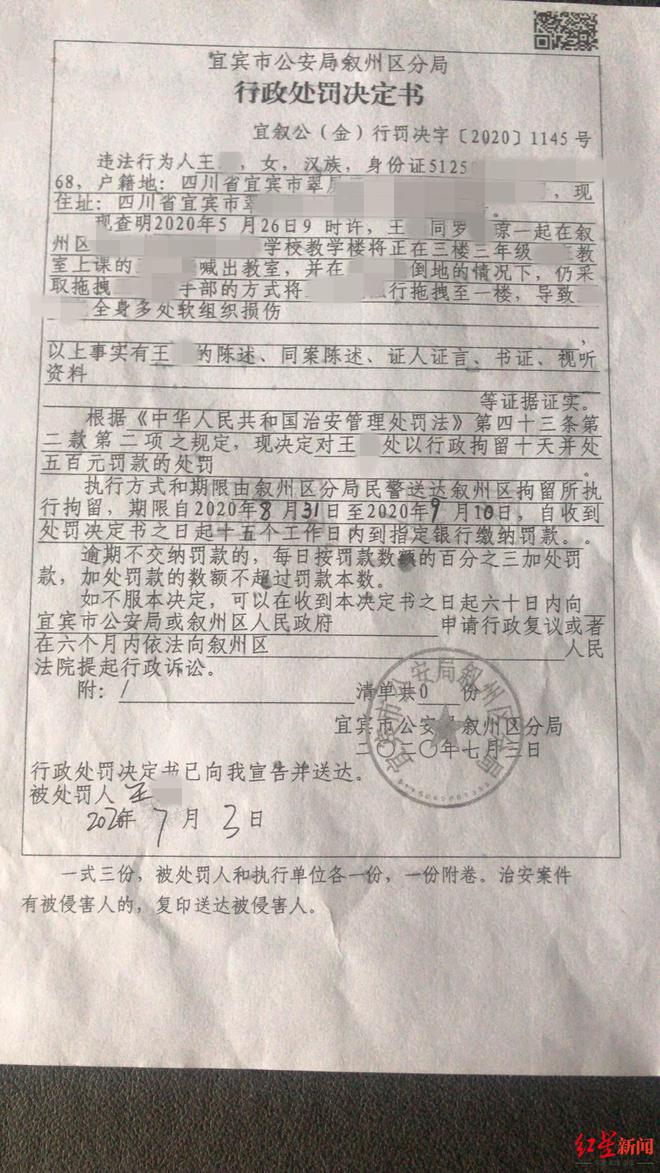 宜宾市公安局叙州区分局
行政处罚决定书
宜叙公（金）行罚决字〔2020〕1145号
违法行为人王，女，汉族，身份证5125
68，户籍地：四川省宜宾市翠，现
住址：四川省宜宾市翠
现查明2020年5月26日9时许，王同罗琼一起在叙
州区学校教学楼将正在三楼三年级教
室上课的喊出教室，并在倒地的情况下，仍采
取拖拽手部的方式将行拖拽至一楼，导致
全身多处软组织损伤，
以上事实有王的陈述、同案陈述、证人证言、书证、视听
资料
等证据证实。
根据《中华人民共和国治安管理处罚法》第四十三条第
二款第二项之规定，现决定对王处以行政拘留十天并处
五百元罚款的处罚。
执行方式和期限由叙州区分局民警送达叙州区拘留所执
行拘留，期限自2020年8月31日至2020年9月10日，自收到
处罚决定书之日起十五个工作日内到指定银行缴纳罚款。。
逾期不交纳罚款的，每日按罚款数额的百分之三加处罚
款，加处罚款的数额不超过罚款本数。
如不服本决定，可以在收到本决定书之日起六十日内向
宜宾市公安局或叙州区人民政府申请行政复议或者
在六个月内依法向叙州区人民
法院提起行政诉讼。
附：/清单共0份
宜宾市公安局叙州区分局
二〇二〇年七月三日
宜宾市公安局叙州区分局
行政处罚决定书已向我宣告并送达。
被处罚人 王
2020年7月3日
一式三份，被处罚人和执行单位各一份，一份附卷。治安案件
有被侵害人的，复印送达被侵害人。
红星新闻